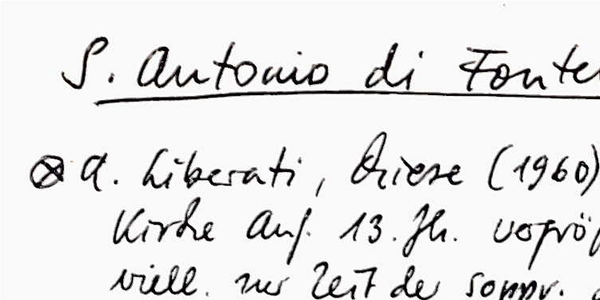 S. Antonio di Fonte
⊗ A. Liberati, Chiese (1960)
Kirche Anf. 13. Jh. vergröß
viell. zur Zeit der soppr.